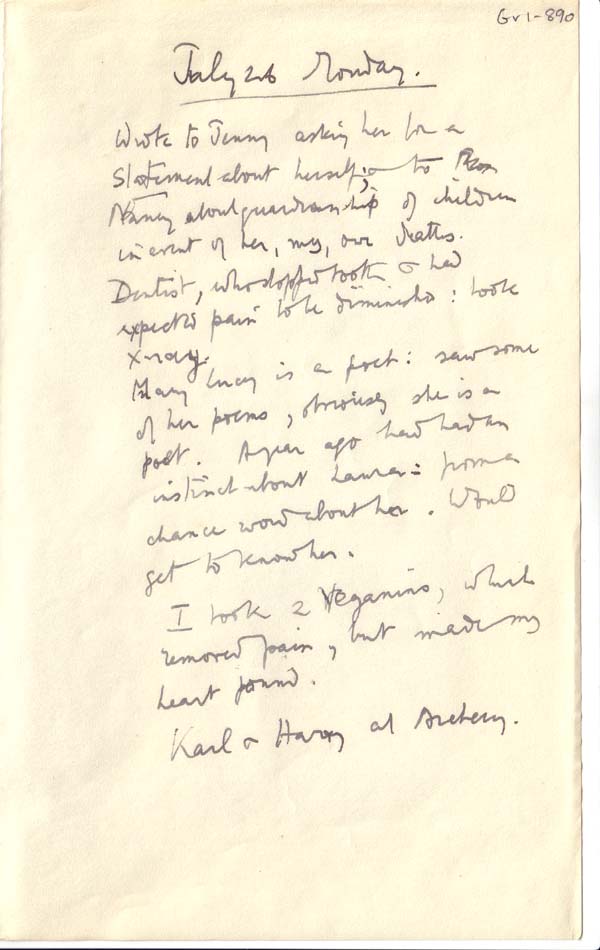 Gv1-890
July 26 Monday.
Wrote to Jenny asking her for a
statement about herself; & to
Nancy about guardianship of children
in event of her, my, our deaths.
Dentist, who stopped tooth & had
expected pain to be diminished: took
x-ray.
Mary Lucy is a poet: saw some
of her poems, obviously she is a
poet. A year ago had had an
instinct about Laura: from a
chance word about her. Would
get to know her.
I took 2 Veganins, which
removed pain, but made my
heart pound.
Karl & Harry at Archery.